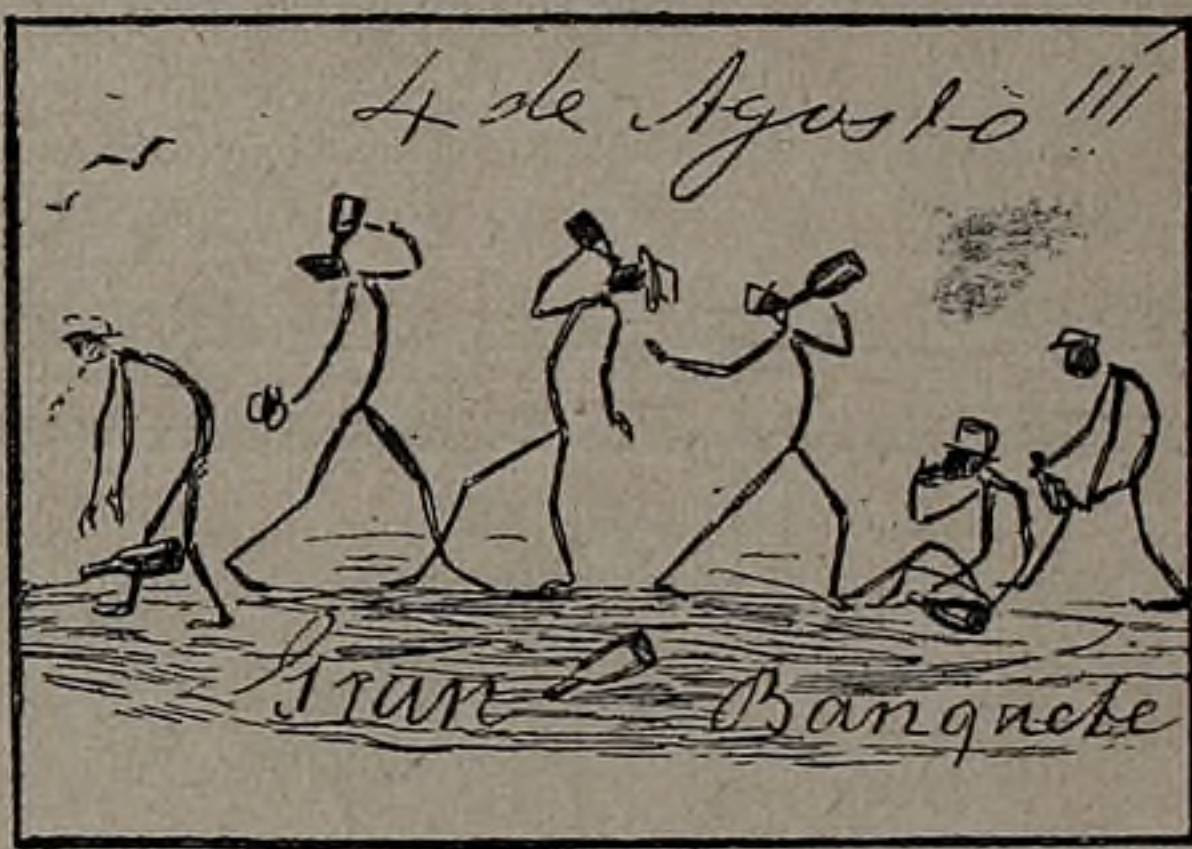 4 de Agosto!!!
Gran Banquete